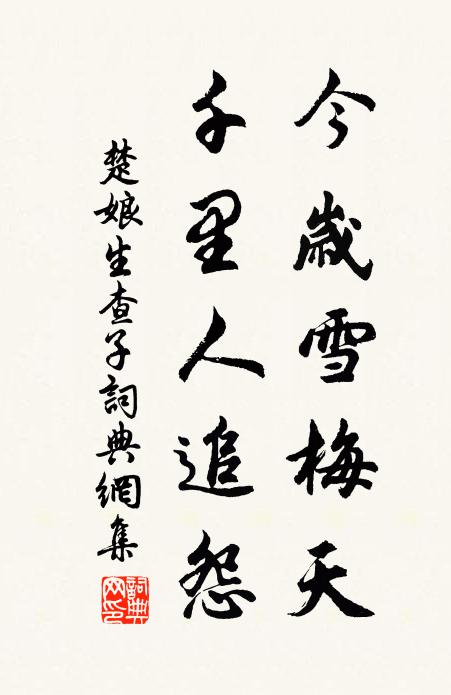 今歲雪梅天
千里人追怨
楚娘生查子詞典網集
詞典網印